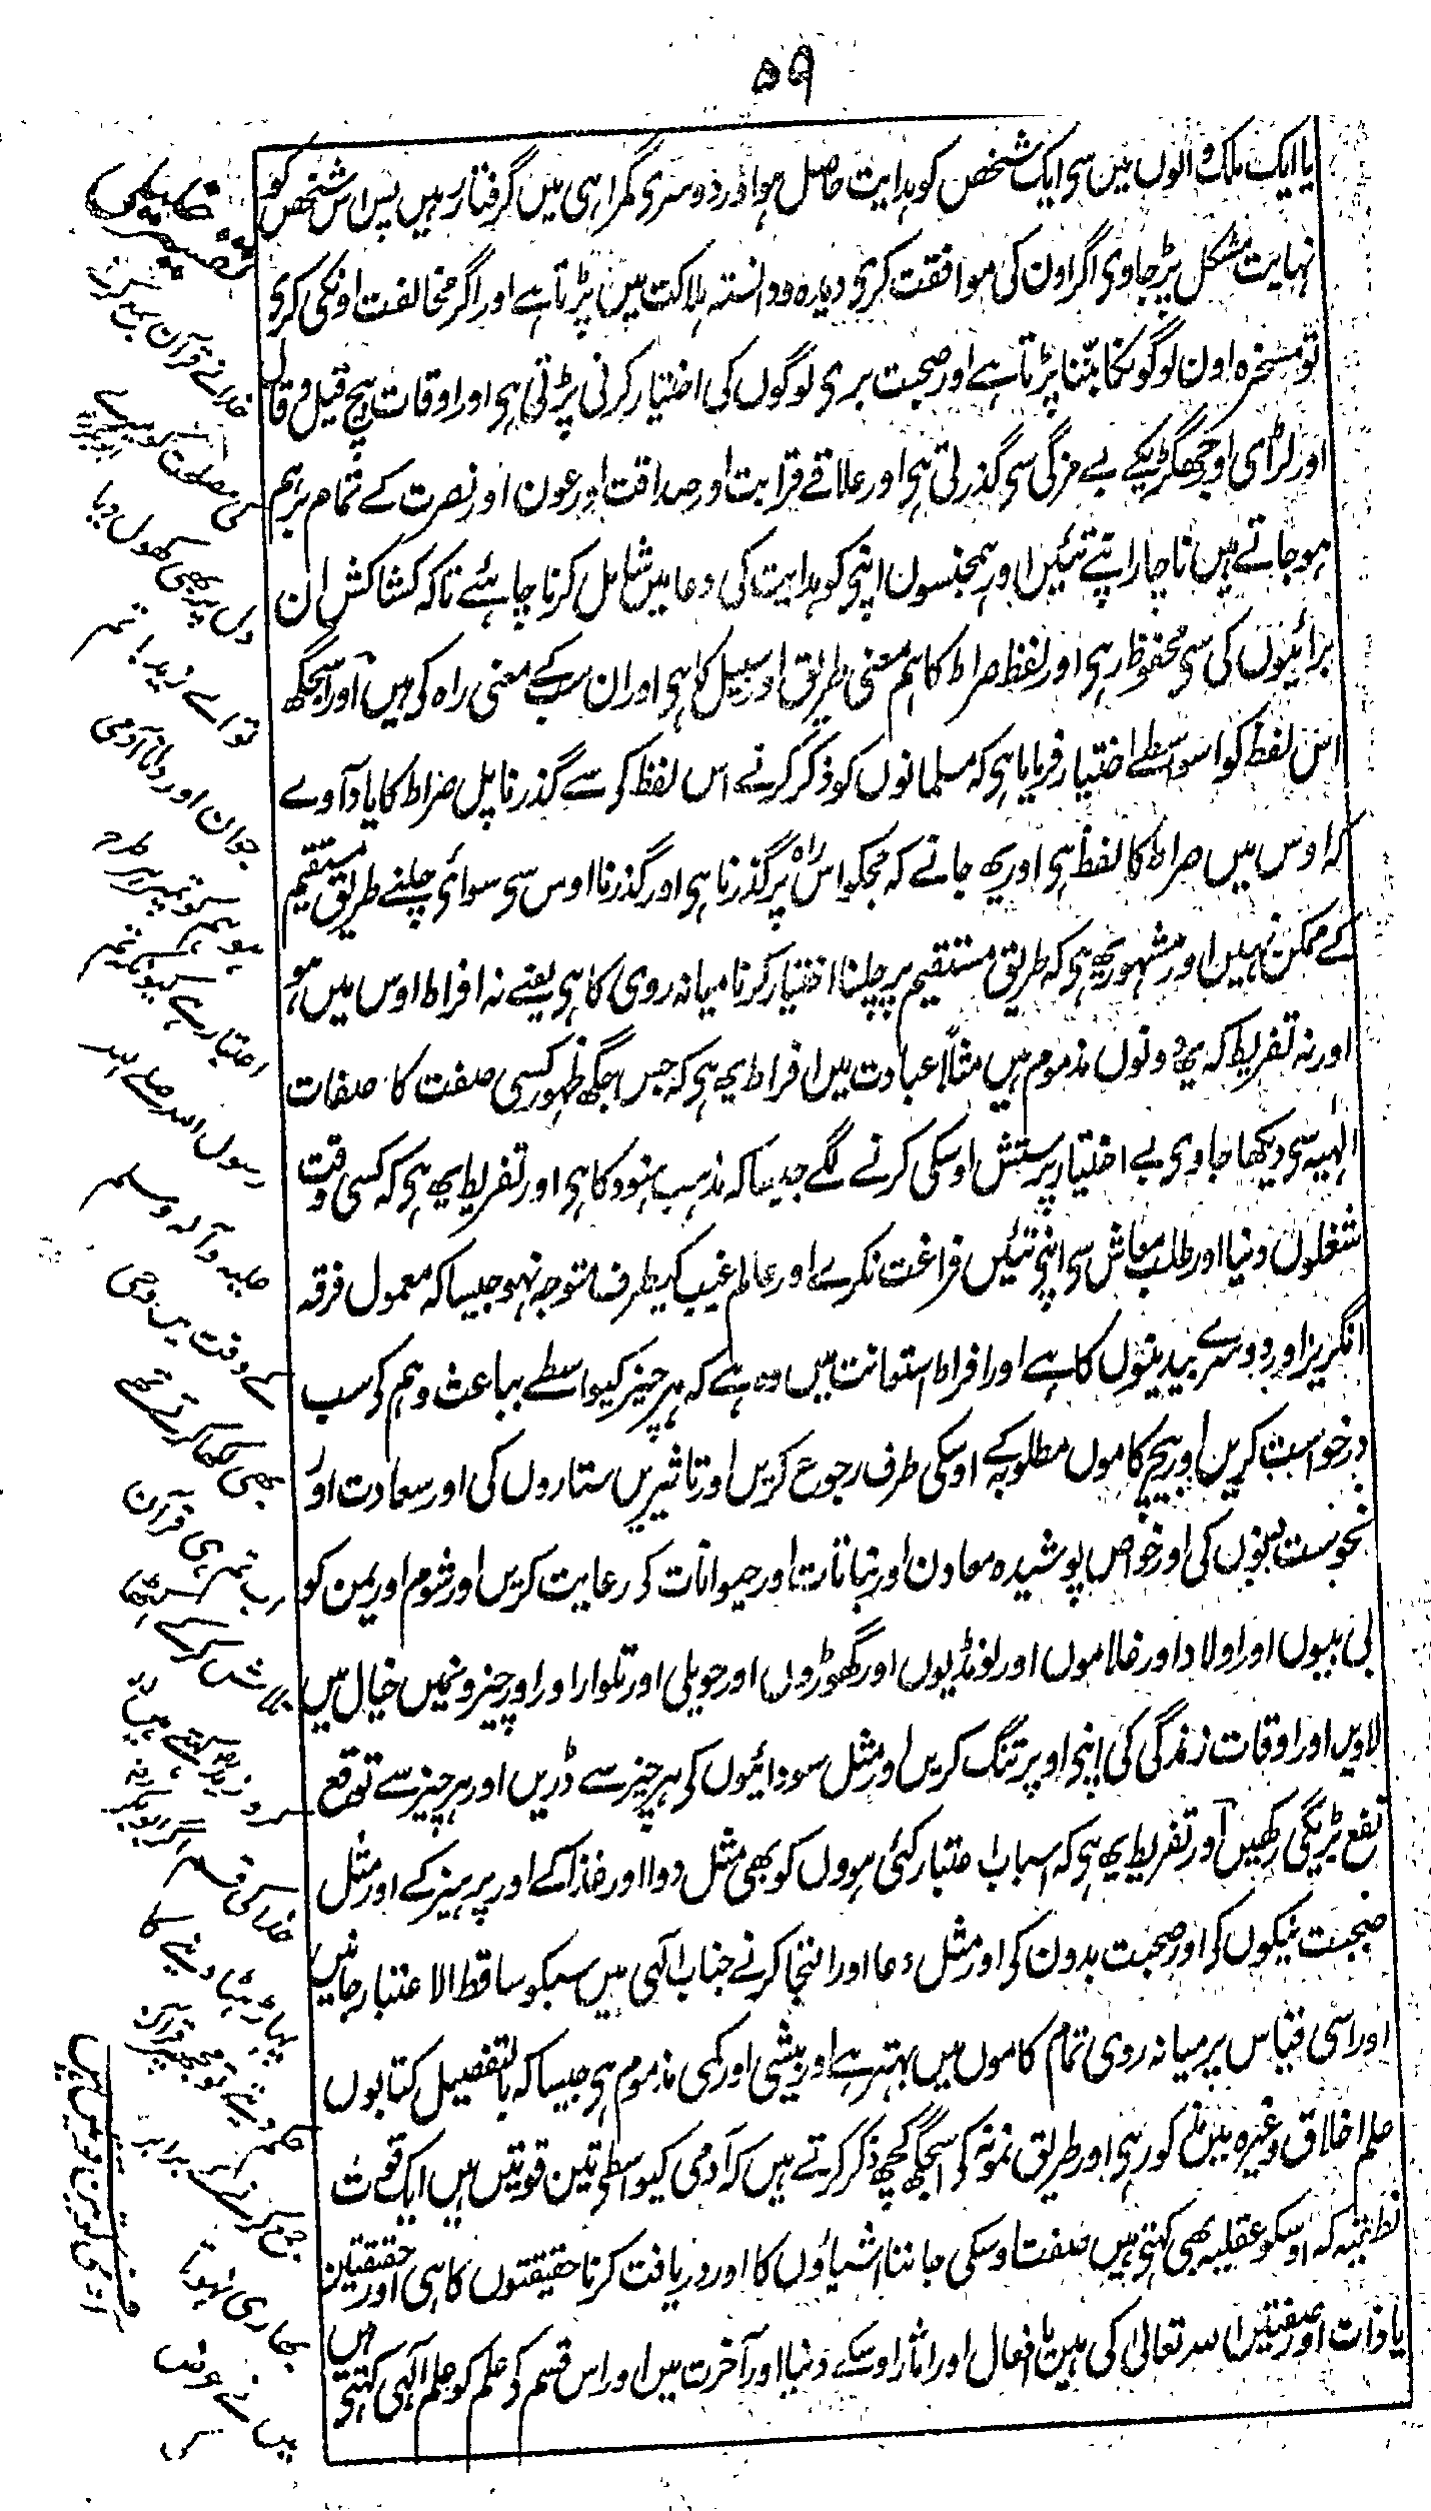 ۵۹
یا ایک ملک والوں مین سی ایک شخص کو ہدایت حاصل ہو اور دوسری گمراہی میں گرفتار رہیں پس اس شخص کو
نہایت مشکل پڑجاوی اگر اون کی موافقت کری دیدہ و دانستہ ہلاکت میں پڑتا ہے اور اگر مخالفت اونکی کری
تو مسخرہ اون لوگونکا بننا پڑتا ہے اور صحبت بری لوگوں کی اختیار کرنی پڑتی ہی اور اوقات بیچ قیل و قال
اور لڑای اوجھگڑیکے بے مزگی سی گذرتی ہی اور علاقے قرابت اور صداقت اور عون اور نصرت کے تمام برہم
ہوجاتے ہیں ناچار اپنے تئیں اور ہمجنسون اپنی کو ہدایت کی دعا میں شامل کرنا چاہئے تاکہ کشاکش ان
برائیوں کی سی محفوظ رہی اور لفظ صراط کا ہم معنی طریق اور سبیل کا ہی اور ان سب کے معنی راہ کی ہیں اور اسجگھ
اس لفظ کو اسواسطے اختیار فرمایا ہی کہ مسلمانوں کو ذکر کرنے اس لفظ کر سے گذرنا پل صراط کا یاد آوے
کہ اوس میں صراط کا لفظ ہی اور یہ جانے کہ مجکو اس راہ پر گذرنا ہی اور گذرنا اوس سی سوائی چلنے طریق مستقیم
کے ممکن نہیں اور مشہور یہ ہی کہ طریق مستقیم پر چلنا اختیار کرنا میانہ روی کا ہی یعنے نہ افراط اوس میں ہو
اور نہ تفریط کہ یہ دونوں مذموم ہیں مثلاً عبادت میں افراط یہ ہی کہ جس جگھ ظہور کسی صفت کا صفات
الٰہیہ سی دیکھا جاوی بے اختیار پرستش اوسکی کرنے لگے جیسا کہ مذہب ہنود کا ہی اور تفریط یہ ہی کہ کسی وقت
شغلوں دنیا اور طلب معاش سی اپنی تئیں فراغت نکرے اور عالم غیب کیطرف متوجہ نہو جیسا کہ معمول فرقہ
انگریز اور دوسرے بیدینوں کا ہے اور افراط استعانت میں وہ ہے کہ ہر چیز کیواسطے بباعث وہم کی سب
درخواست کریں اور بیچ کاموں مطلوبہ کے اوسکی طرف رجوع کریں اور تاثیریں ستاروں کی اور سعادت اور
نحوست بتوں کی اور خواص پوشیدہ معادن اور نباتات اور حیوانات کی رعایت کریں اور شوم اور یمن کو
بی بیوں اور اولاد اور غلاموں اور لونڈیوں اور گھوڑوں اور حویلی اور تلوار اور اور چیزونمیں خیال میں
لاویں اور اوقات زندگی کی اپنی اوپر تنگ کریں اور مثل سودائیوں کی ہر چیز سے ڈریں اور ہر چیز سے توقع
نفع بڑیکی رکھیں اور تفریط یہ ہی کہ اسباب اعتبار کئی ہووں کو بھی مثل دوا اور غذا کے اور پرہیز کے اور مثل
صحبت نیکوں کی اور صحبت بدون کی اور مثل دعا اور التجا کرنے جناب الٰہی میں سبکو ساقط الاعتبار جانیں
اور اسی قیاس پر میانہ روی تمام کاموں میں بہتر ہے اور بیشی اور کمی مذموم ہی جیسا کہ بالتفصیل کتابوں
علم اخلاق وغیرہ میں مذکور ہی اور طریق نمونہ کی اسجگھ کچھ ذکر کرتے ہیں کہ آدمی کیواسطی تین قوتیں ہیں ایک قوت
نطقیہ کہ اوسکو عقلیہ بھی کہتی ہیں صفت اوسکی جاننا اشیاؤں کا اور دریافت کرنا حقیقتوں کا ہی اور حقیقتین
یا ذات اور صفتیں اللہ تعالیٰ کی ہیں یا افعال اور اثار اوسکے دنیا اور آخرت میں اور اس قسم کی علم کو علم الٰہی کہتی ہیں
خدا نے قرآن جمع کرنے
کی مصلحت کو میرے
دل پر بھی کھول دیا
تو اے زید تم
جوان اور دانا آدمی
ہو ہم کو تمپر ہر طرح
اعتبار ہے کیونکہ تم
رسول اللہ صلے اللہ
علیہ وآلہ وسلم
کے وقت میں وحی
بھی لکھا کرتے تھے
اب تم ہی قرآن
خدا کی قسم اگر
پہاڑ ہٹا دینے کا
حکم دیتے تو مجھپر قرآن
جمع کرنے کے برابر
بھاری نہوتا
میں نے عرض
کی